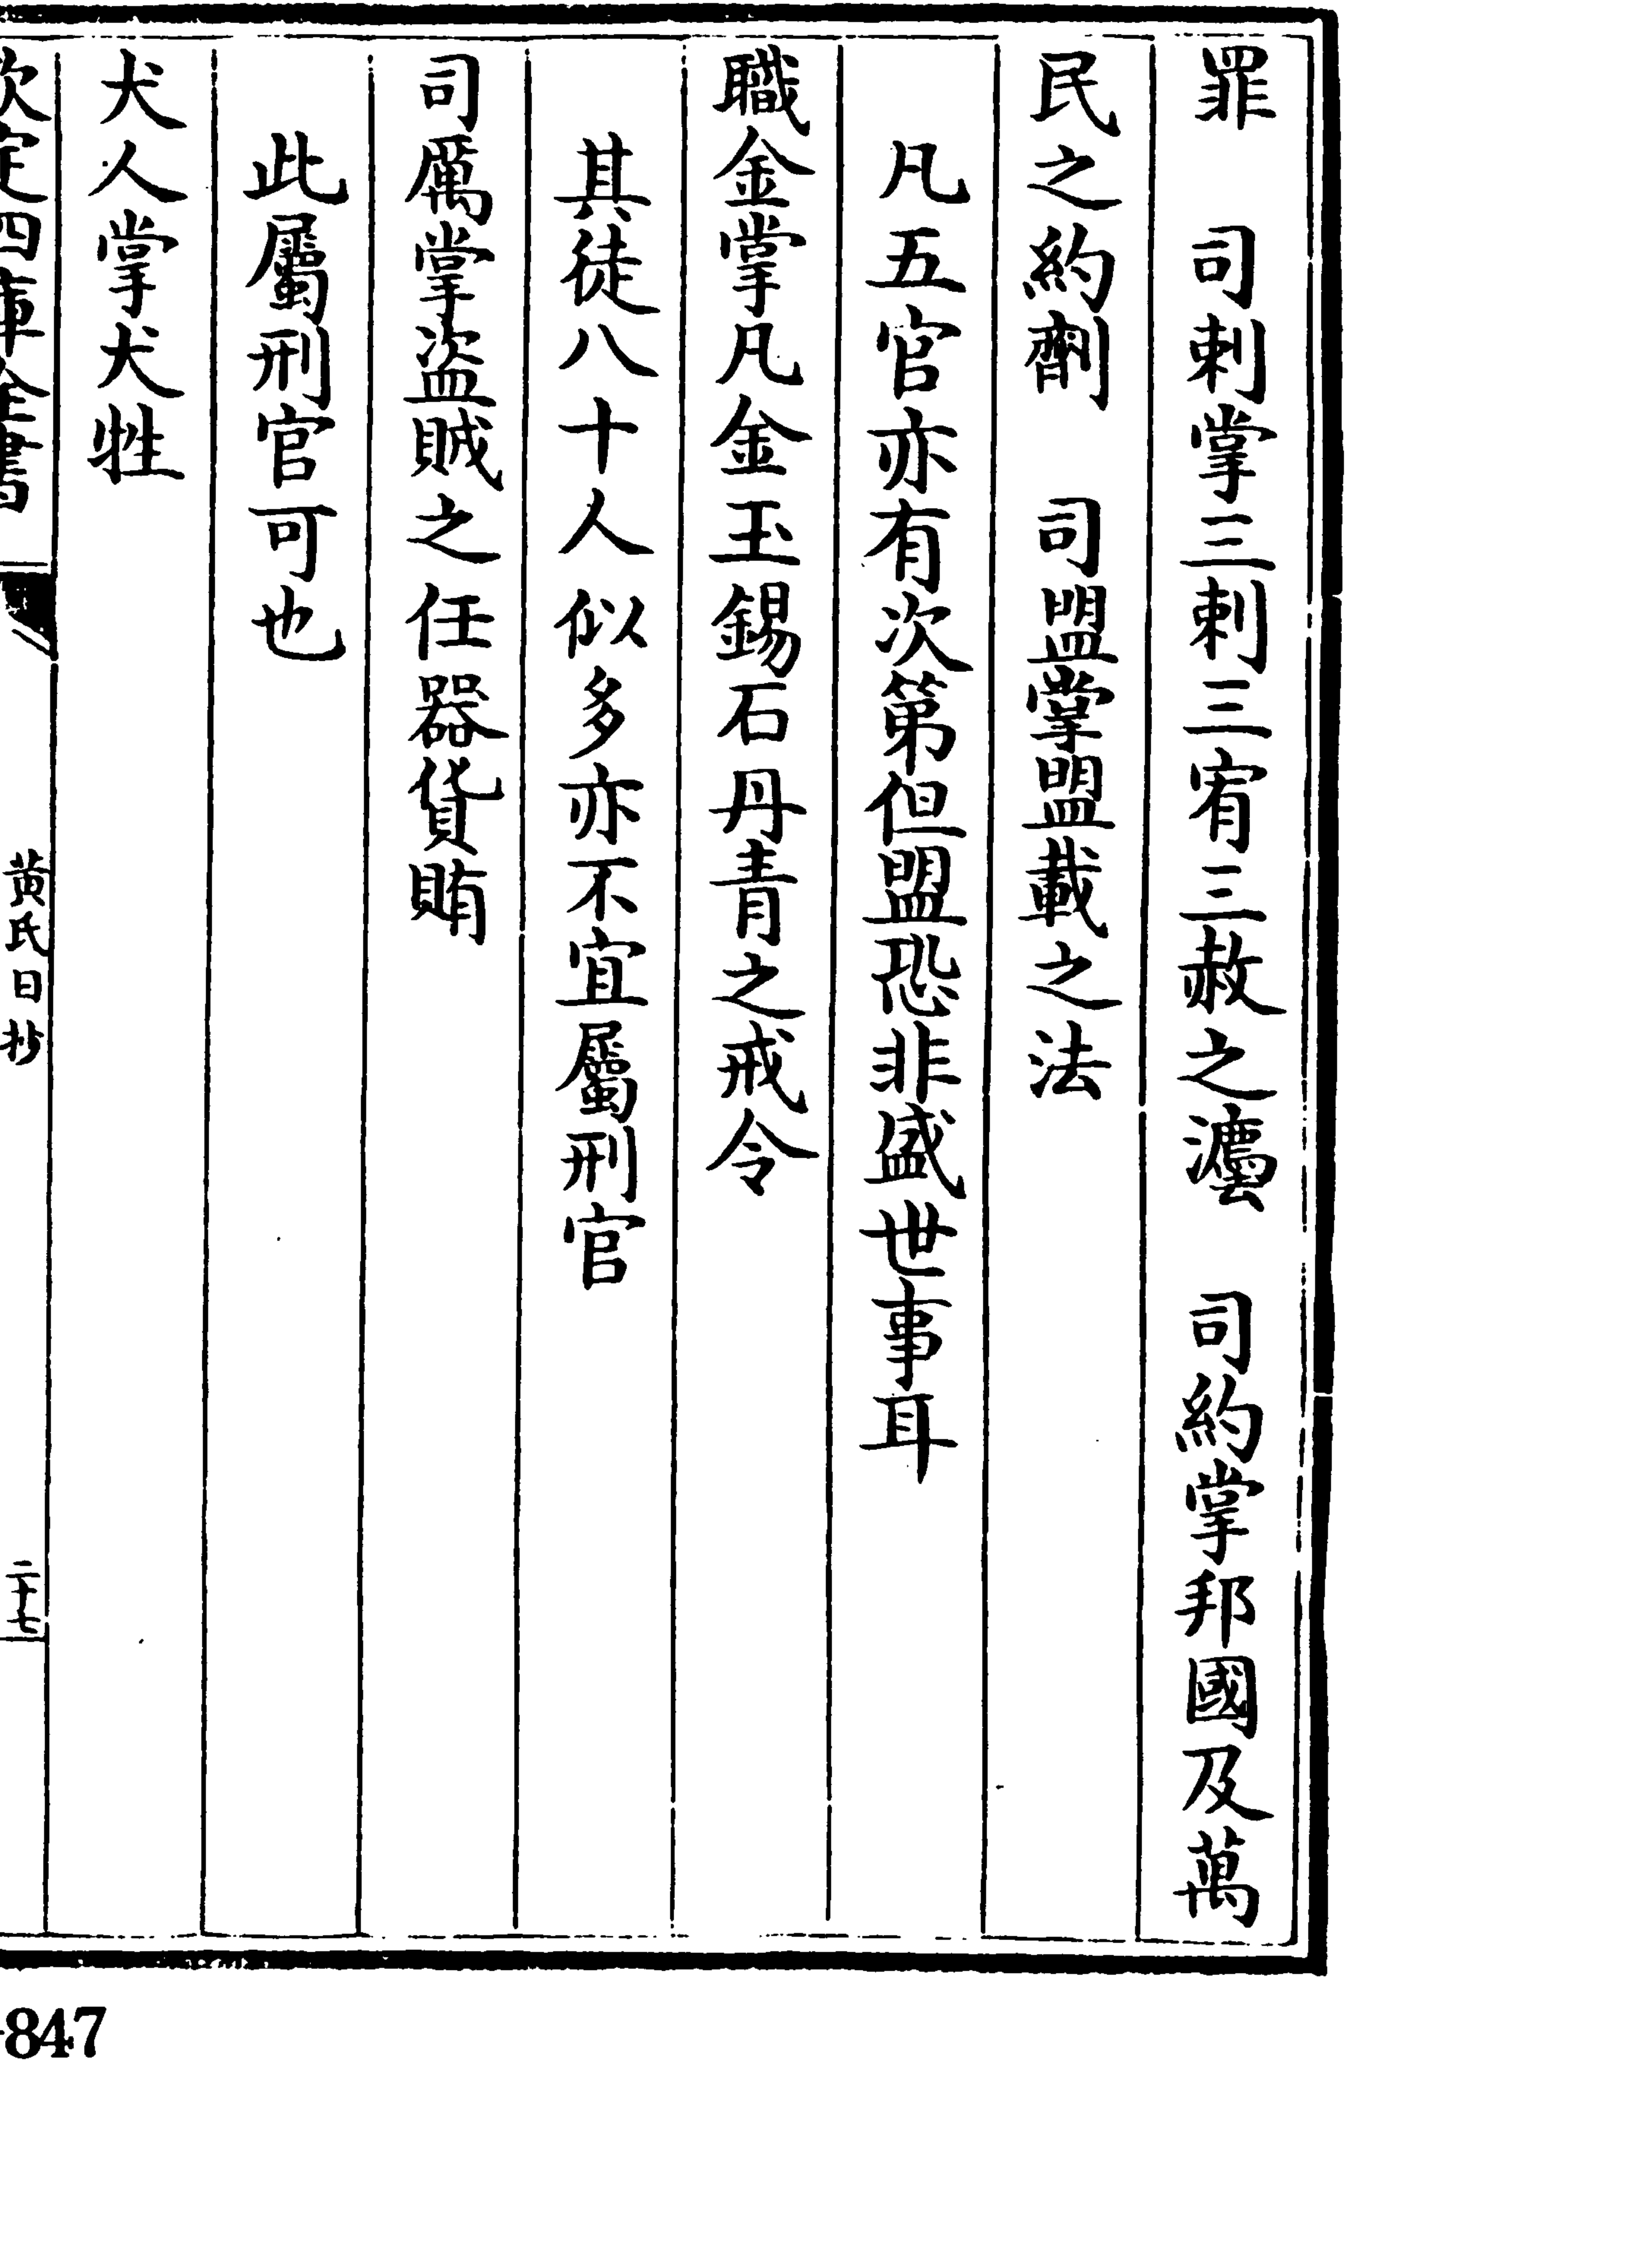 罪　司刺掌三刺三宥三赦之灋　司約掌邦國及萬
民之約劑　司盟掌盟載之法
凡五官亦有次第但盟恐非盛世事耳
職金掌凡金玉錫石丹青之戒令
其徒八十人似多亦不宜屬刑官
司厲掌盜賊之任器貨賄
此屬刑官可也
犬人掌犬牲
欽定四庫全書
黄氏日抄
二十七
847